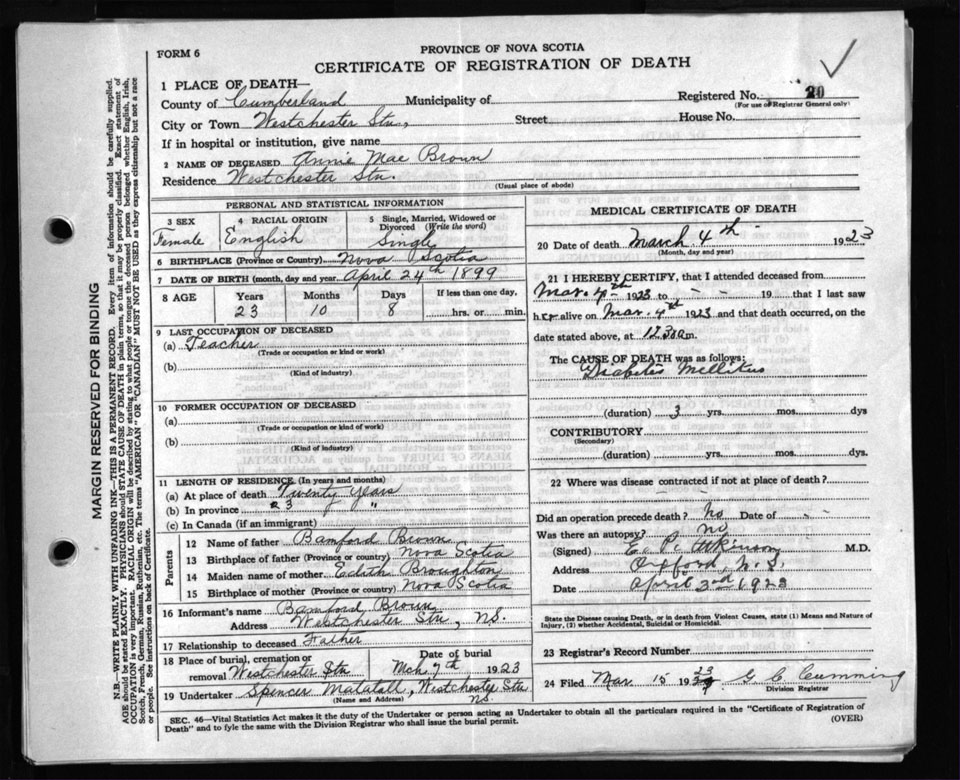 FORM 6
PROVINCE OF NOVA SCOTIA
CERTIFICATE OF REGISTRATION OF DEATH
1 PLACE OF DEATH—
County of Cumberland Municipality of
Registered No. 20
(For use of Registrar General only)
City or Town Westchester Stn., Street House No.
If in hospital or institution, give name
2 NAME OF DECEASED Annie Mae Brown
Residence Westchester Stn.
(Usual place of abode)
PERSONAL AND STATISTICAL INFORMATION
3 SEX
Female
4 RACIAL ORIGIN
English
5 Single, Married, Widowed or
Divorced (Write the word)
Single
6 BIRTHPLACE (Province or Country) Nova Scotia
7 DATE OF BIRTH (month, day and year) April 24th 1899
8 AGE Years Months Days If less than one day,
23 10 8 hrs. or min.
9 LAST OCCUPATION OF DECEASED
(a) Teacher
(Trade or occupation or kind or work)
(b)
(Kind of industry)
10 FORMER OCCUPATION OF DECEASED
(a)
(Trade or occupation or kind of work)
(b)
(Kind of industry)
11 LENGTH OF RESIDENCE. (In years and months)
(a) At place of death Twenty Years
(b) In province 23 "
(c) In Canada (if an immigrant)
Parents
12 Name of father Bamford Brown
13 Birthplace of father (Province or country) Nova Scotia
14 Maiden name of mother Edith Broughton
15 Birthplace of mother (Province or country) Nova Scotia
16 Informant's name Bamford Brown
Address Westchester Stn, NS.
17 Relationship to deceased Father
18 Place of burial, cremation or
removal Westchester Stn
Date of burial
Mch 7th 1923
19 Undertaker Spencer Matatall, Westchester Stn
NS
(Name and Address)
MEDICAL CERTIFICATE OF DEATH
20 Date of death March 4th 1923
(Month, day and year)
21 I HEREBY CERTIFY, that I attended deceased from
Mar. 4th 1923 to - - 19 that I last saw
her alive on Mar. 4th 1923 and that death occurred, on the
date stated above, at 12.30am.
The CAUSE OF DEATH was as follows:
Diabetis Mellitus
(duration) 3 yrs. mos. dys
CONTRIBUTORY
(Secondary)
(duration) yrs. mos. dys.
22 Where was disease contracted if not at place of death?
Did an operation precede death? No Date of
Was there an autopsy? No
(Signed) E. P. Atkinson M.D.
Address Oxford, N.S.
Date April 3rd 1923
State the Disease causing Death, or in death from Violent Causes, state (1) Means and Nature of
Injury, (2) whether Accidental, Suicidal or Homicidal.
23 Registrar's Record Number
24 Filed Mar 15 1923 G. C. Cumming
Division Registrar
SEC. 46—Vital Statistics Act makes it the duty of the Undertaker or person acting as Undertaker to obtain all the particulars required in the "Certificate of Registration of
Death" and to fyle the same with the Division Registrar who shall issue the burial permit.
(OVER)
MARGIN RESERVED FOR BINDING
N.B.—WRITE PLAINLY WITH UNFADING INK—THIS IS A PERMANENT RECORD. Every item of information should be carefully supplied.
AGE should be stated EXACTLY. PHYSICIANS should STATE CAUSE OF DEATH in plain terms, so that it may be properly classified. Exact statement of
OCCUPATION is very important. RACIAL ORIGIN will be described by stating to what people or tongue the deceased person belonged whether English, Irish,
Scotch, French, German, Russian, Ruthenian, etc. The terms "AMERICAN" or "CANADIAN" MUST NOT BE USED as they express citizenship but not a race
or people. See instructions on back of Certificate.